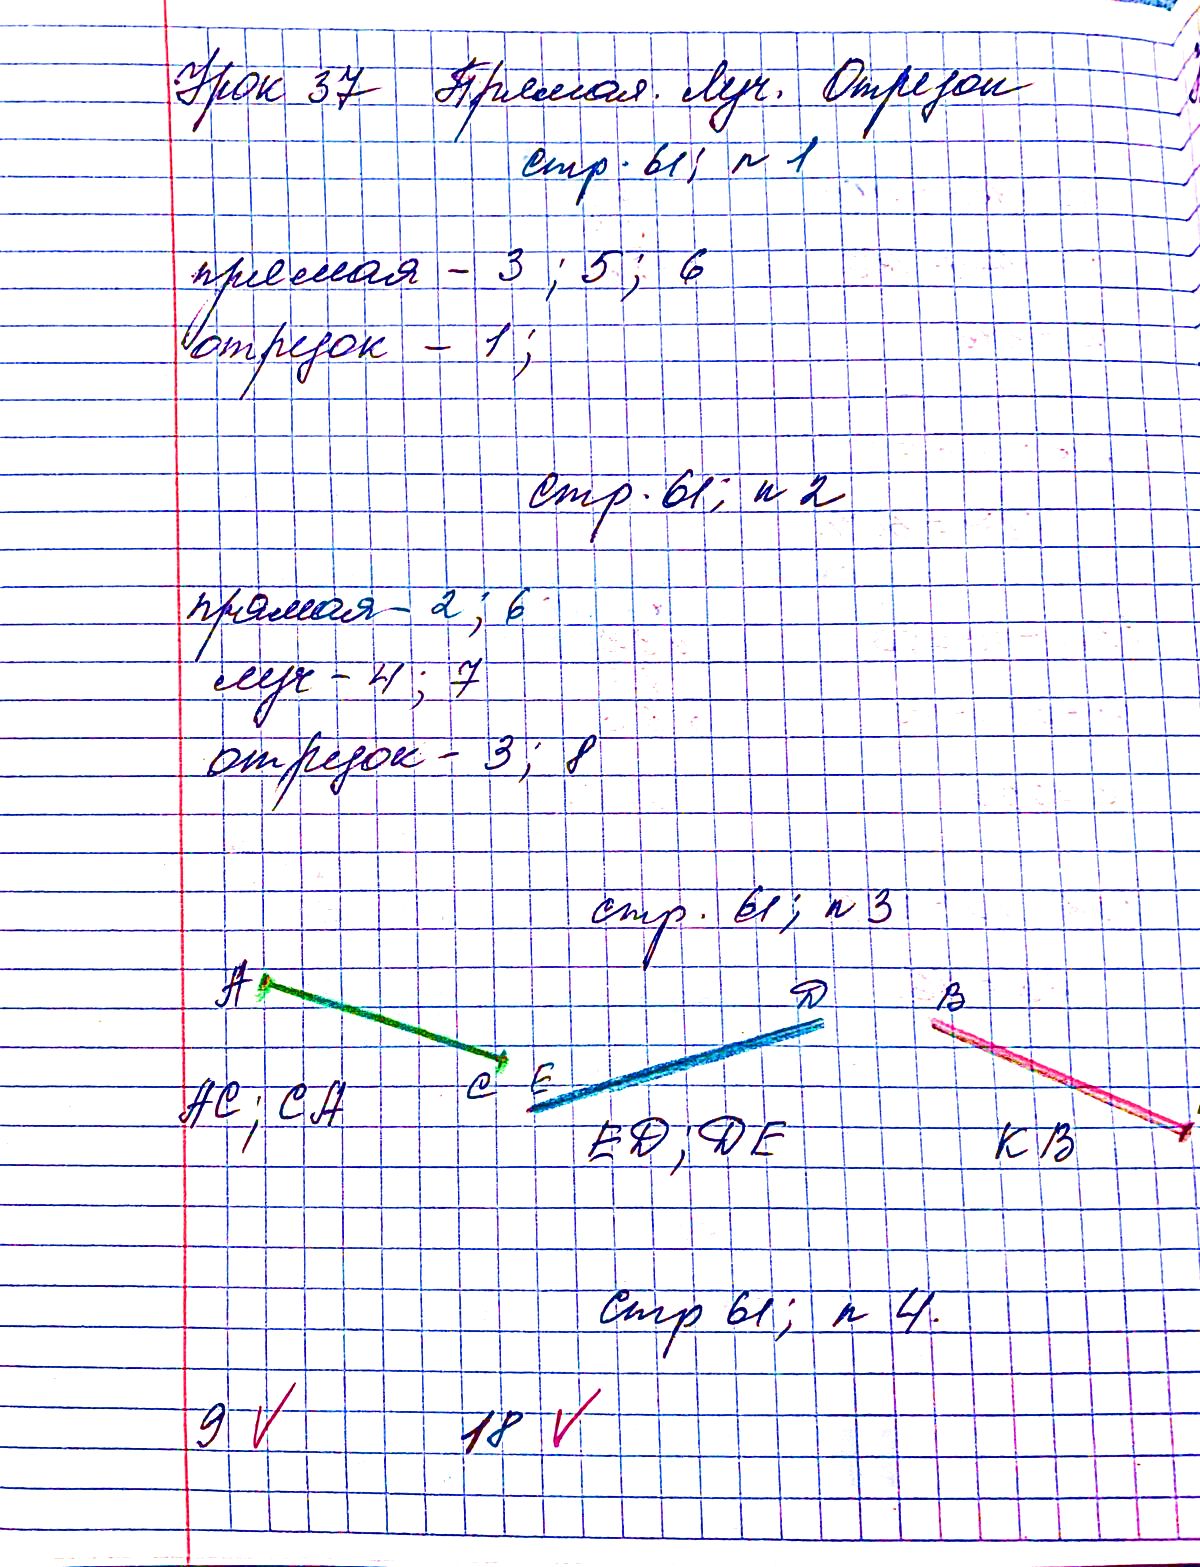 Урок 37 Прямая. Луч. Отрезок
стр. 61; n 1
прямая - 3; 5; 6
отрезок - 1;
стр. 61; n 2
прямая - 2; 6
луч - 4; 7
отрезок - 3; 8
стр. 61; n 3
A D B
C E
AC; CA ED; DE KB
стр 61; n 4.
9 ✓ 18 ✓